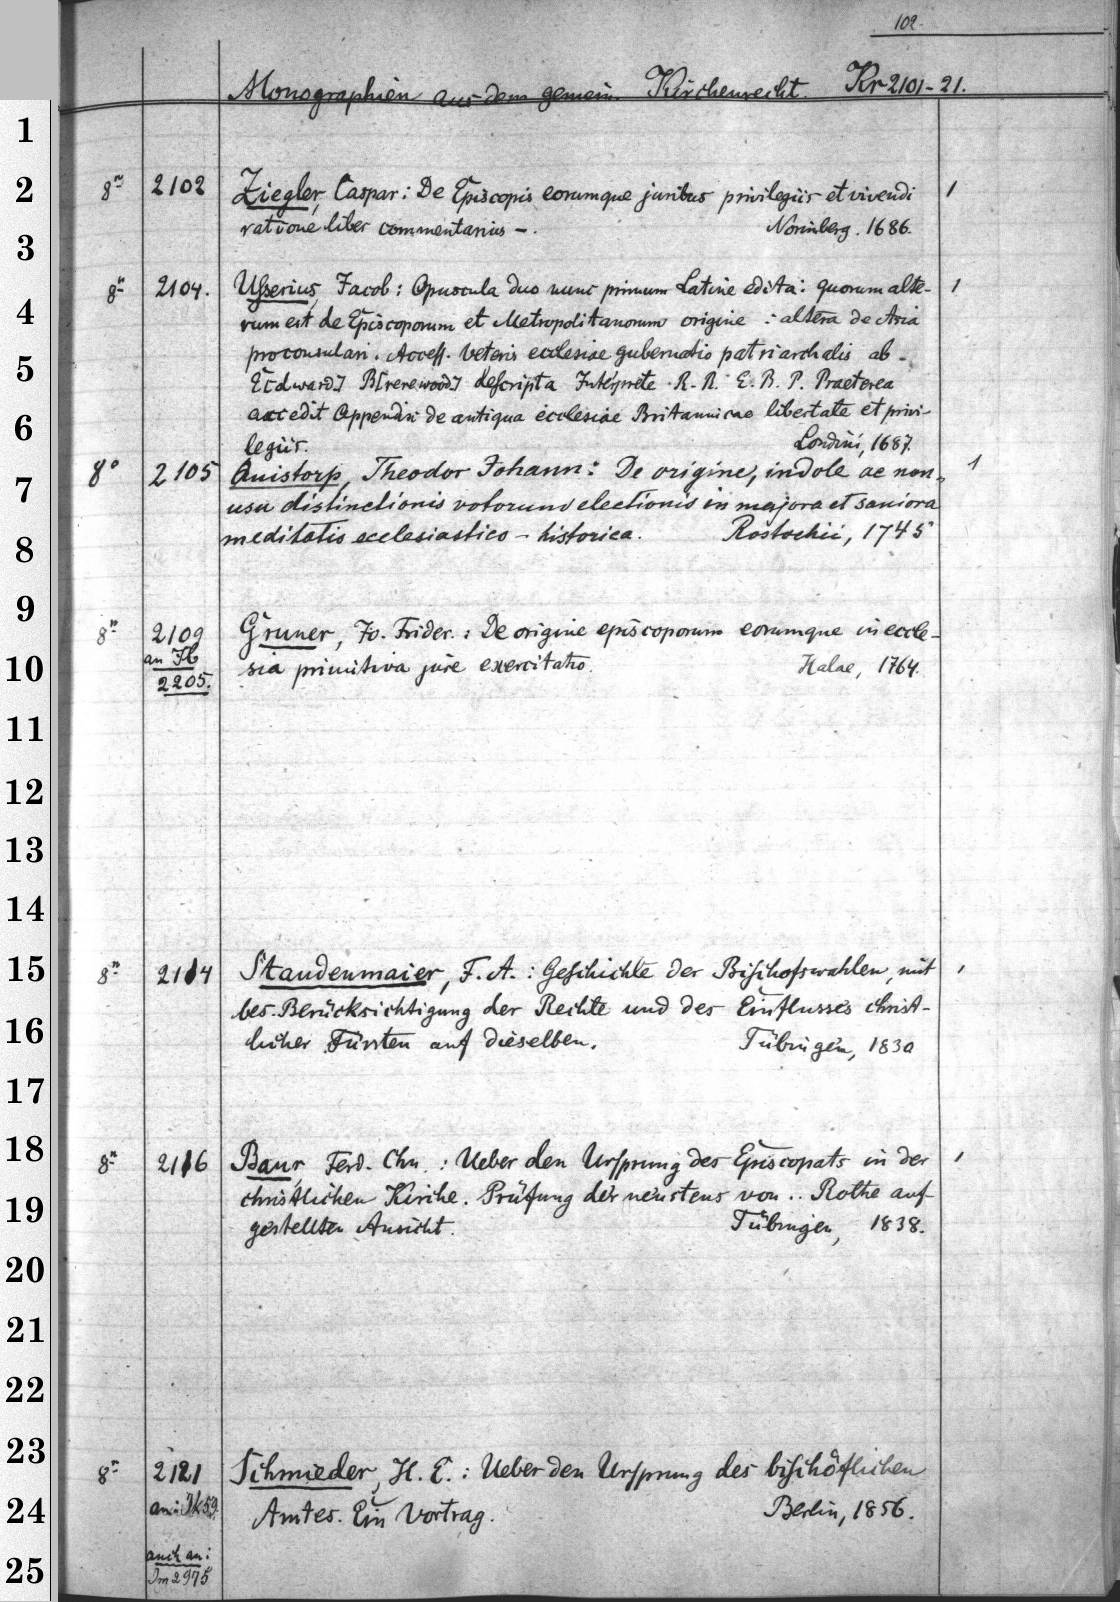 102.
Monographien aus dem gemein. Kirchenrecht. Kr 2101-21.
1
2 8º 2102 Ziegler, Caspar: De Episcopis eorumque juribus privilegiis et vivendi 1
ratione liber commentarius -. Norinberg. 1686.
3
8º 2104. Usserius, Jacob: Opuscula duo nunc primum Latine edita: quorum alte- 1
4 rum est de Episcoporum et Metropolitanorum origine : altera de Asia
proconsulari. Access. veteris ecclesiae gubernatio patriarchalis ab
5 E[dward] B[rerewood] descripta Interprete R. R. E. B. P. Praeterea
6 accedit Appendix de antiqua ecclesiae Britannicae libertate et privi-
legiis. Londini, 1687.
7 8º 2105 Quistorp, Theodor Johann: De origine, indole ac non- 1
usu distinctionis votorum electionis in majora et saniora
8 meditatis ecclesiastico - historica. Rostochii, 1745
9 8º 2109 Gruner, Jo. Frider.: De origine episcoporum eorumque in eccle-
10 an Jb sia primitiva jure exercitatio. Halae, 1764.
2205.
11
12
13
14
15 8º 2114 Staudenmaier, F. A.: Geschichte der Bischofswahlen, mit 1
bes. Berücksichtigung der Rechte und des Einflusses christ-
16 licher Fürsten auf dieselben. Tübingen, 1830
17
18 8º 2116 Baur, Ferd. Chn.: Ueber den Ursprung des Episcopats in der 1
19 christlichen Kirche. Prüfung der neustens von .. Rothe auf-
gestellten Ansicht. Tübingen, 1838.
20
21
22
23 8º 2121 Schmieder, H. E.: Ueber den Ursprung des bischöflichen
24 an: Jk 59. Amtes. Ein Vortrag. Berlin, 1856.
auch an:
25 Im 2975